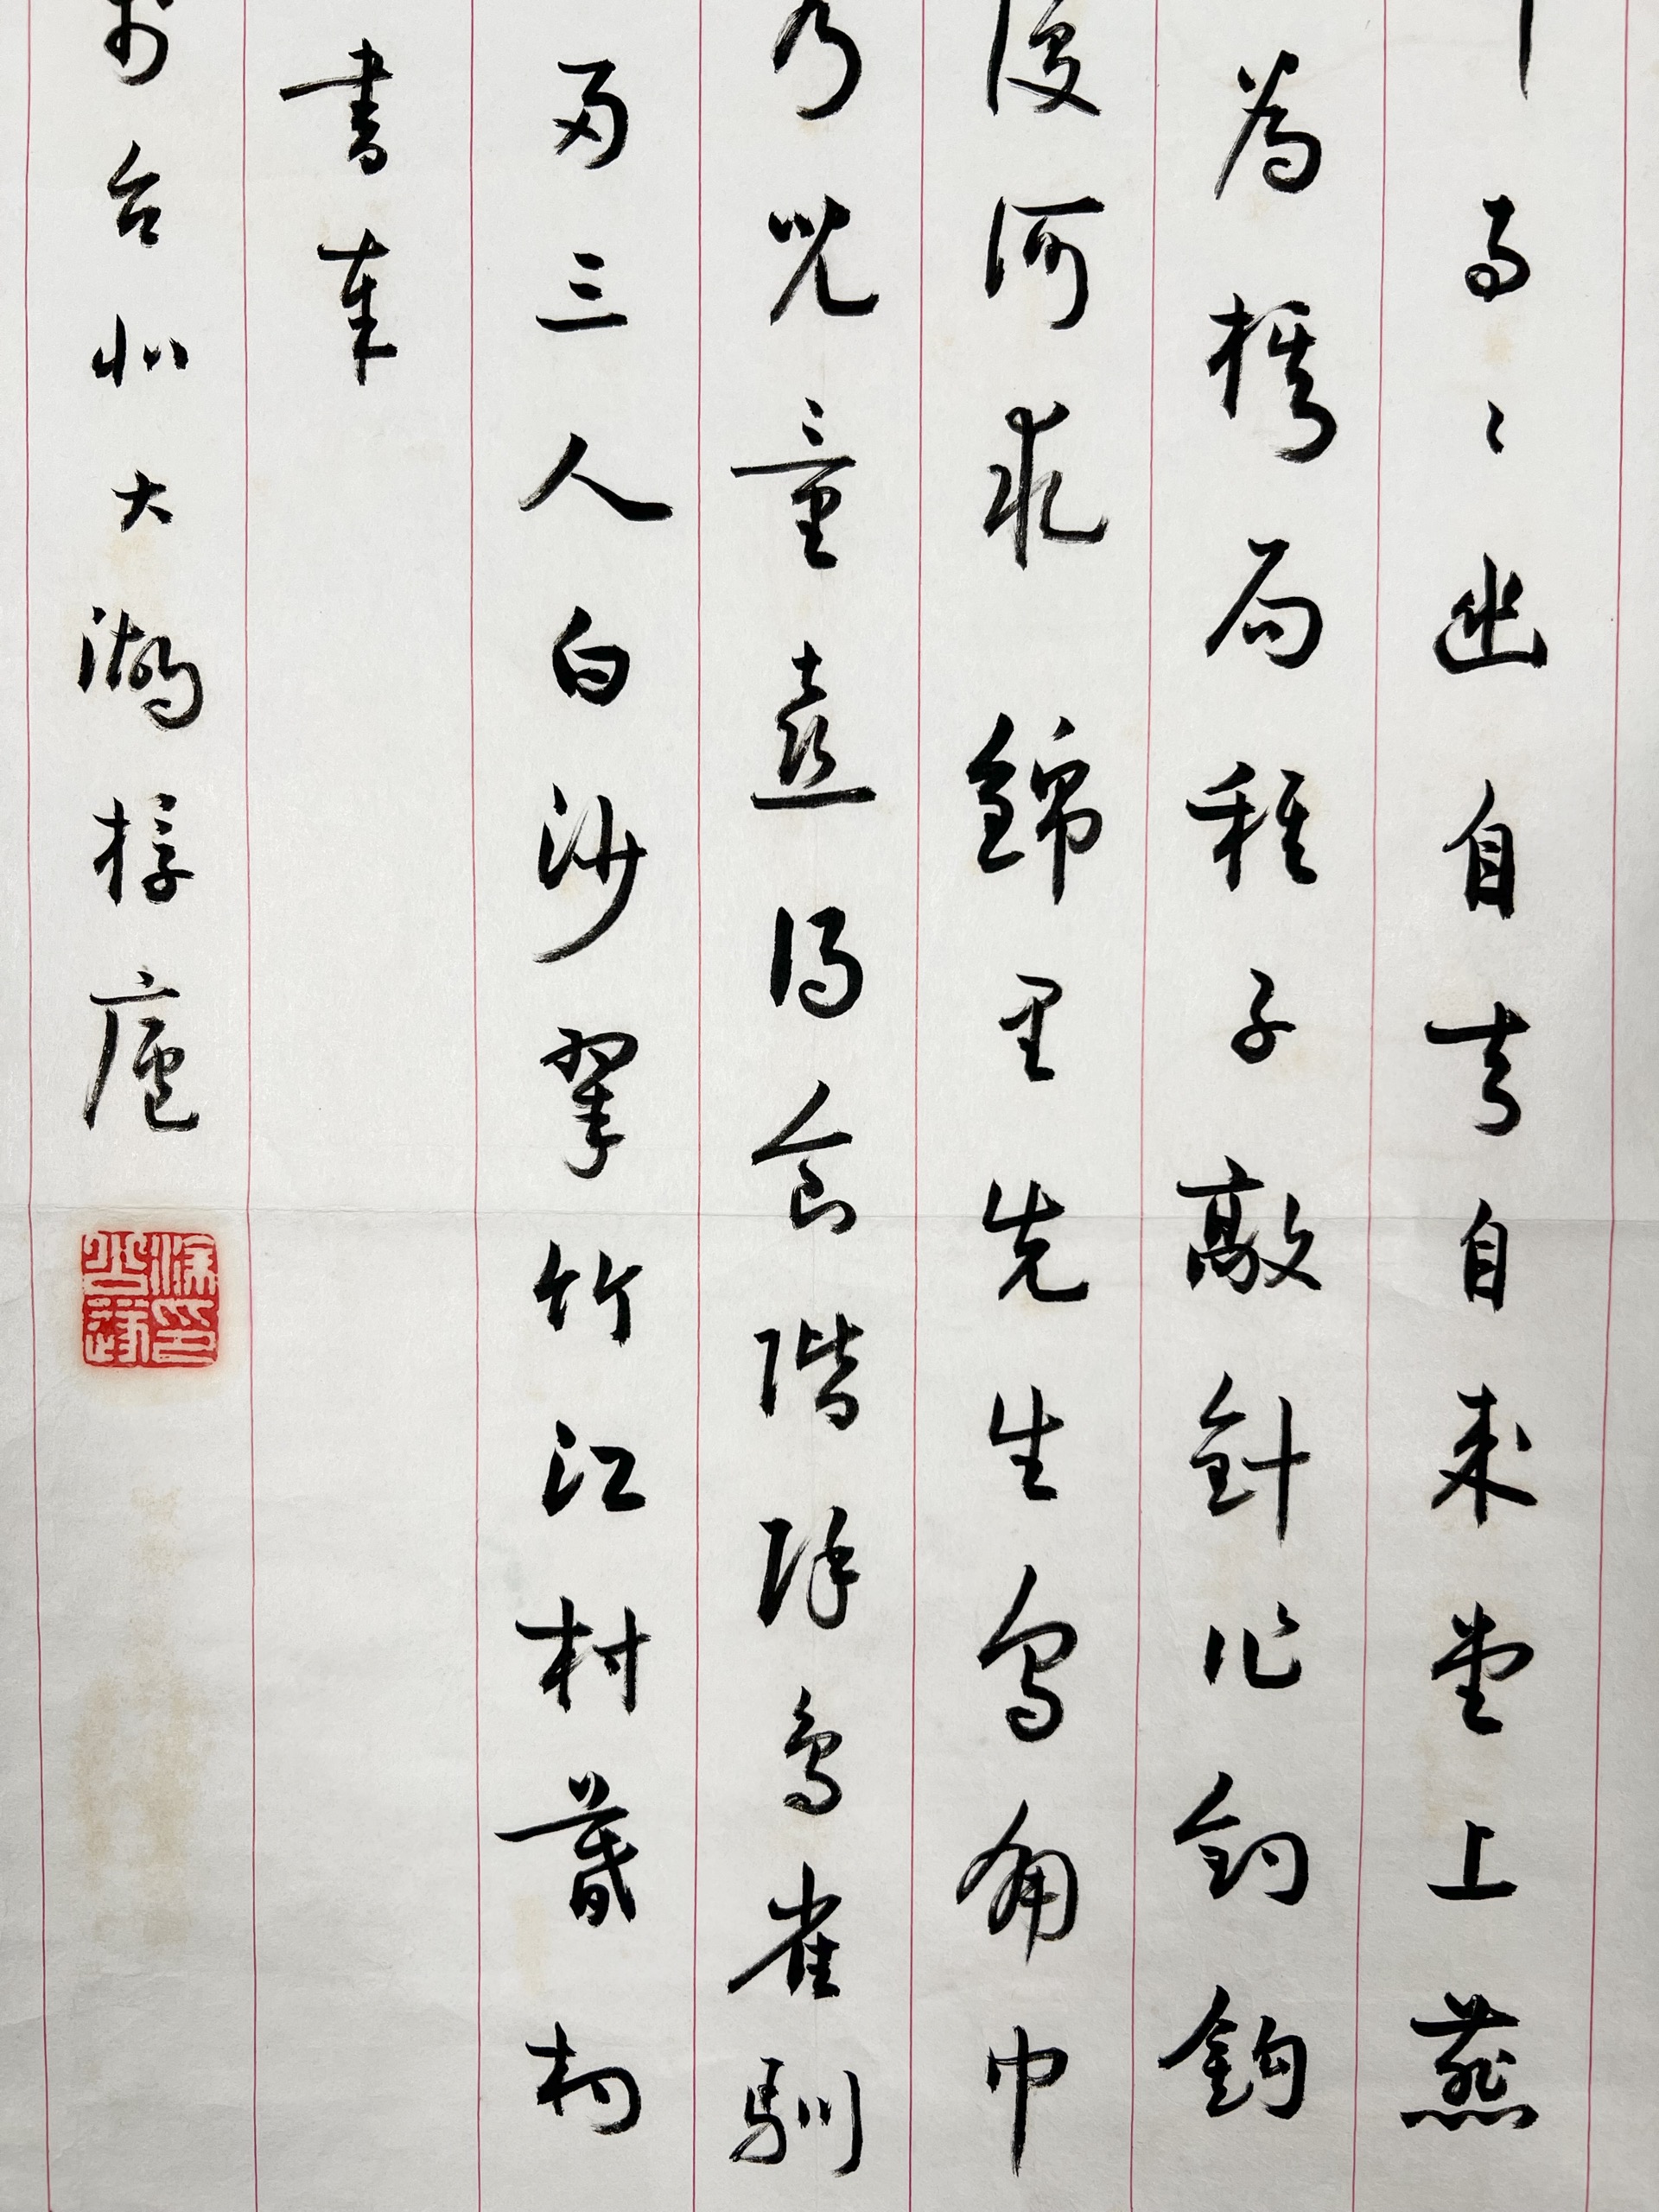 事〻幽自去自来堂上燕
為棋局稚子敲針作釣鉤
復何求錦里先生烏角巾
兒童喜得食階除鳥雀馴
兩三人白沙翠竹江村暮相
書奉
於台北大湖廬